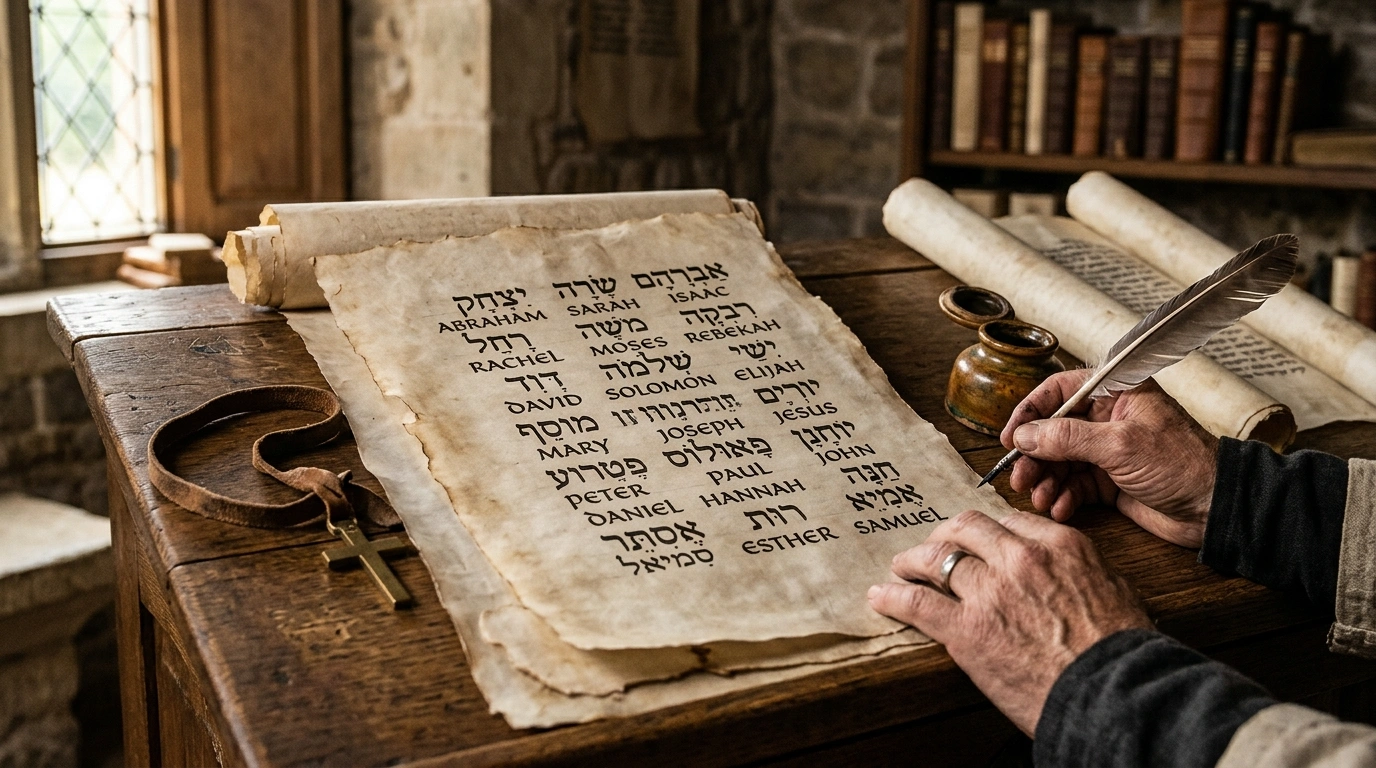 אִבְרָהָם שָׂרָה יִצְחָק
ABRAHAM SARAH ISAAC
רִבְקָה מֹשֶׁה רָחֵל
RACHEL MOSES REBEKAH
יִשַׁי שְׁלֹמֹה דָוִד
DAVID SOLOMON ELIJAH
יוֹרִים מוסף
MARY JOSEPH JESUS
יוֹחָנָן פָּאוּלוֹס פֶטרוע
PETER PAUL JOHN
חַנָּה
DANIEL HANNAH אֱמִיָא
אֶסְתֵּר רוּת SAMUEL
סמִיאֵל ESTHER